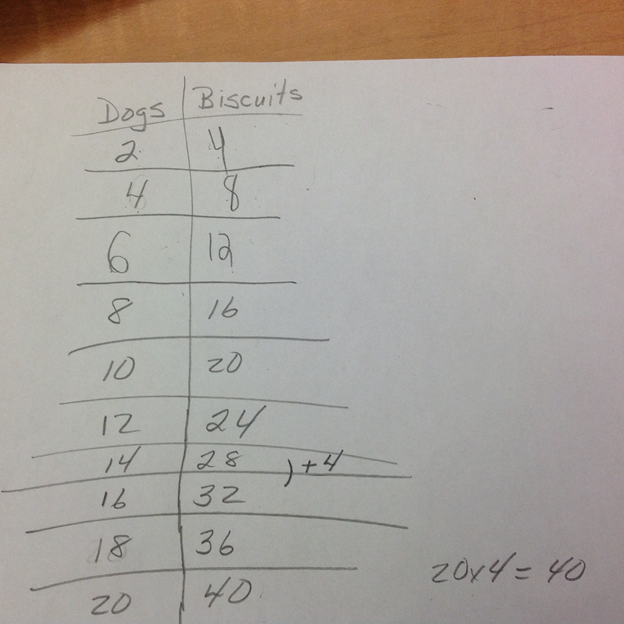 Dogs Biscuits
2 4
4 8
6 12
8 16
10 20
12 24
14 28
) +4
16 32
18 36
20 40
20x4 = 40